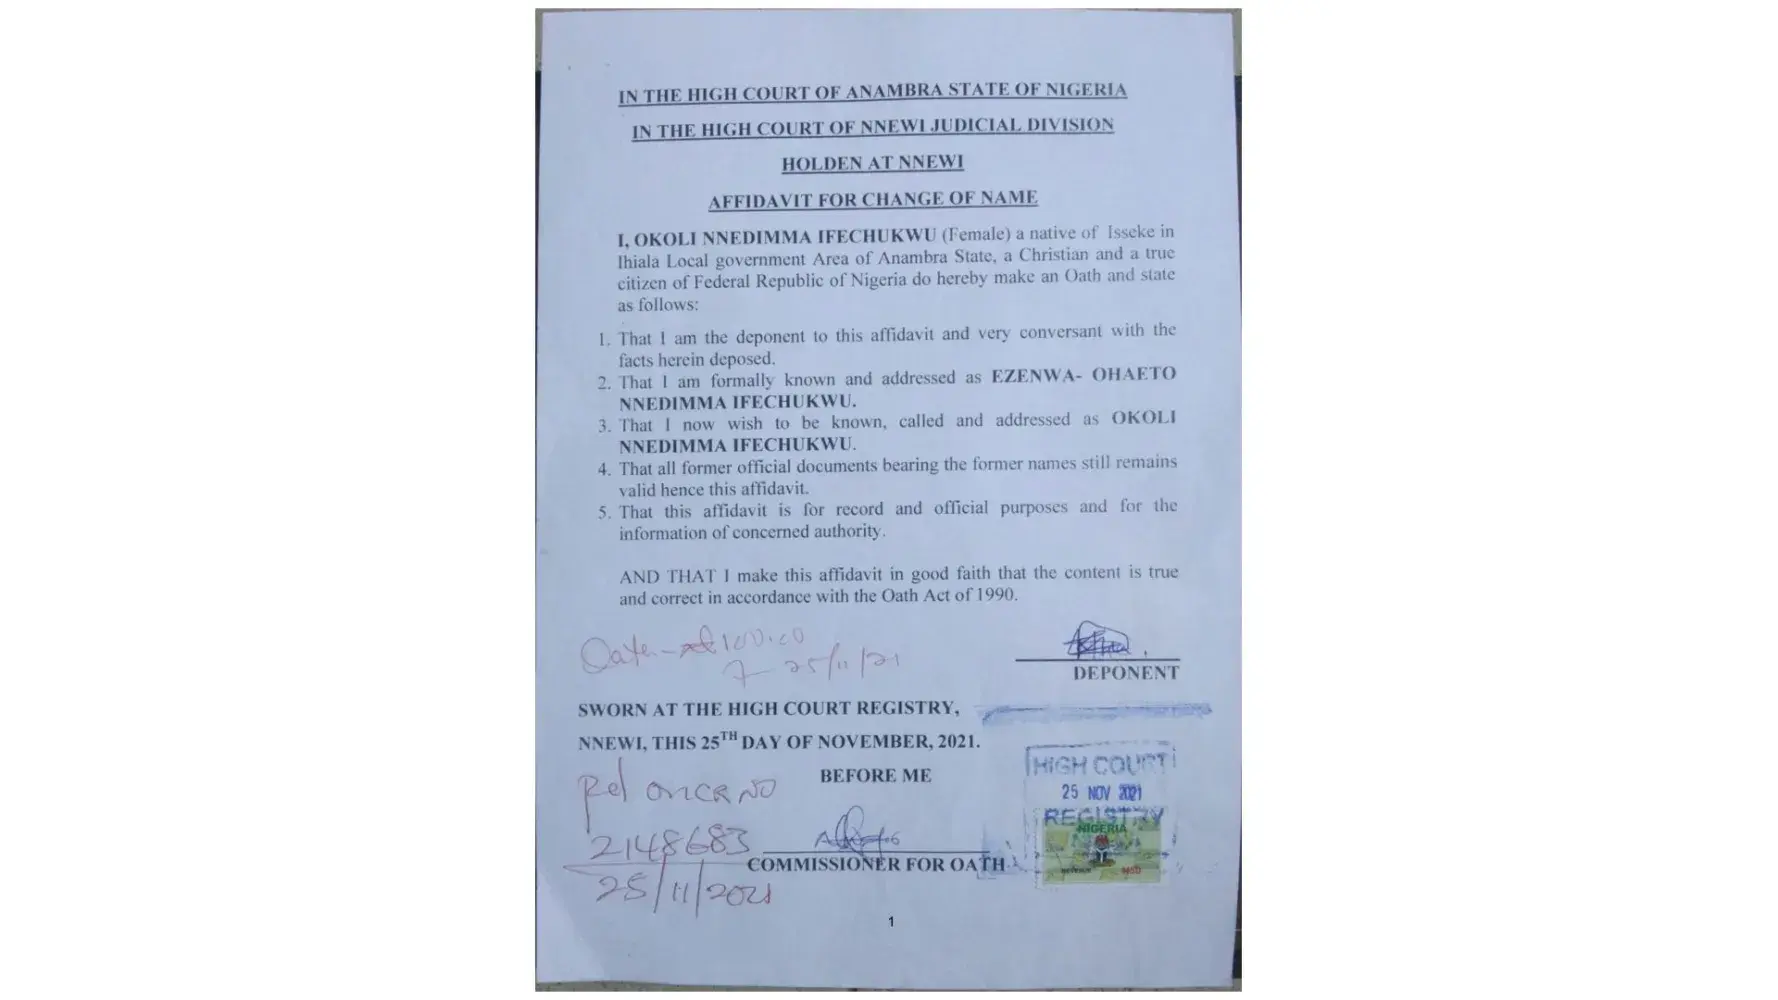 IN THE HIGH COURT OF ANAMBRA STATE OF NIGERIA
IN THE HIGH COURT OF NNEWI JUDICIAL DIVISION
HOLDEN AT NNEWI
AFFIDAVIT FOR CHANGE OF NAME
I, OKOLI NNEDIMMA IFECHUKWU (Female) a native of Isseke in
Ihiala Local government Area of Anambra State, a Christian and a true
citizen of Federal Republic of Nigeria do hereby make an Oath and state
as follows:
1. That I am the deponent to this affidavit and very conversant with the
facts herein deposed.
2. That I am formally known and addressed as EZENWA- OHAETO
NNEDIMMA IFECHUKWU.
3. That I now wish to be known, called and addressed as OKOLI
NNEDIMMA IFECHUKWU.
4. That all former official documents bearing the former names still remains
valid hence this affidavit.
5. That this affidavit is for record and official purposes and for the
information of concerned authority.
AND THAT I make this affidavit in good faith that the content is true
and correct in accordance with the Oath Act of 1990.
100.00
25/11/21
DEPONENT
SWORN AT THE HIGH COURT REGISTRY,
NNEWI, THIS 25TH DAY OF NOVEMBER, 2021.
BEFORE ME
HIGH COURT
25 NOV 2021
REGISTRY
NIGERIA
2148683
COMMISSIONER FOR OATH
25/11/2021
1